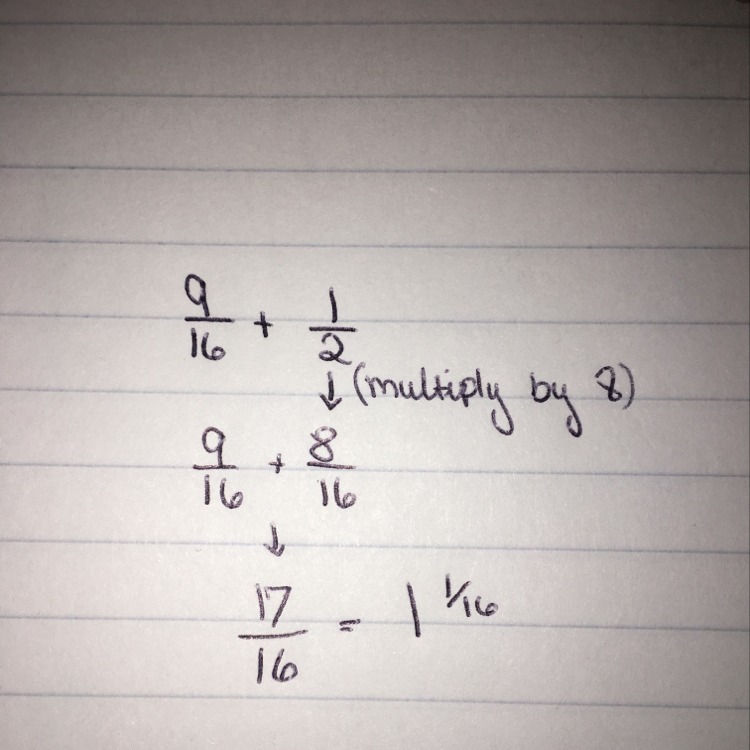 9/16 + 1/2
↓ (multiply by 8)
9/16 + 8/16
↓
17/16 = 1 1/16